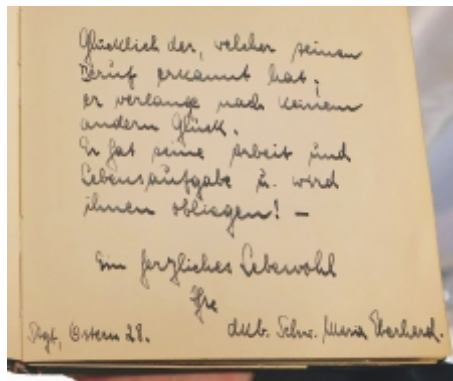 Glücklich der, welcher seinen
Beruf erkannt hat;
er verlange nach keinem
andern Glück.
Er hat seine Arbeit und
Lebensaufgabe u. wird
ihnen obliegen! –
Ein herzliches Lebewohl
Ihre
Stgt, Ostern 28.
dkb. Schw. Maria Eberhard.